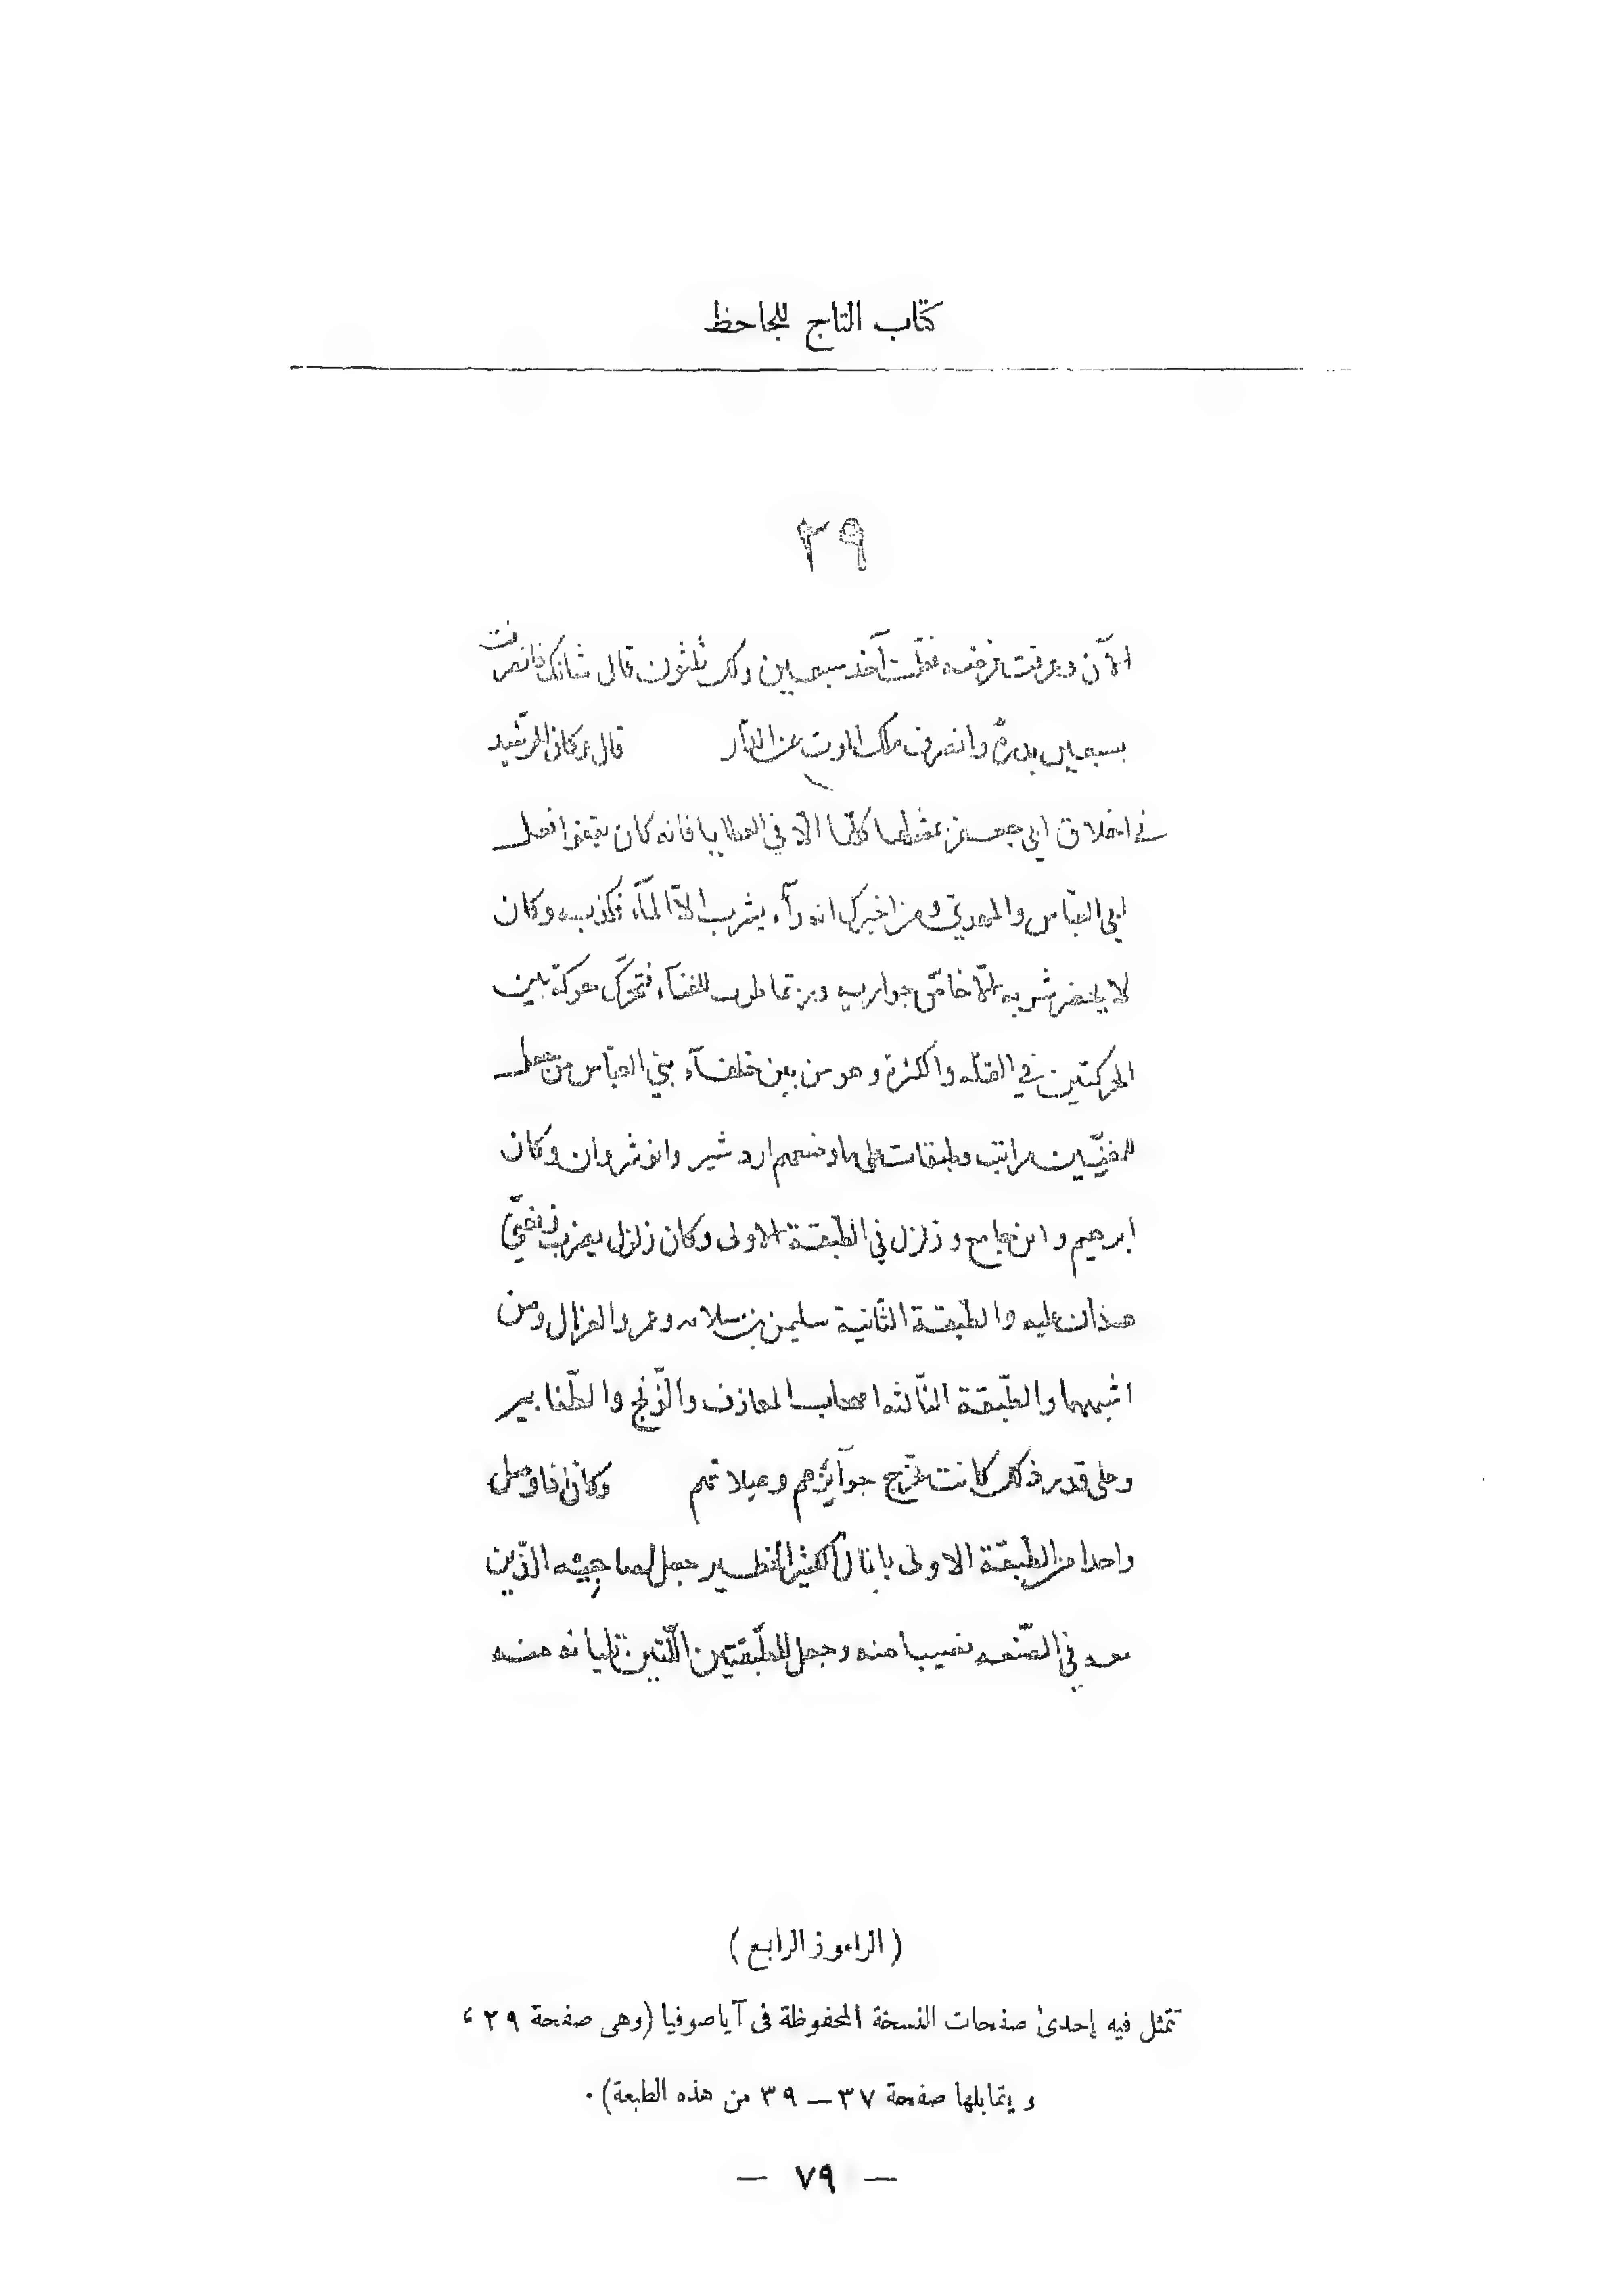 كتاب التاج للجاحظ
٢٩
الآن وعرفت غرضه فقلت آخذ سبعين ولك ثلثون قال شانك فانصرفت
بسبعين بدرة وانصرف ملك الموت عن الدار قال وكان الرشيد
في اخلاق ابي جعفر يمتثلها كلها الا في العطايا فانه كان يقفوا فعل
ابي العباس والمهدي ومن اخبرك انه رآه يشرب الا المآء فكذبه وكان
لا يحضر شربه الا خاص جواريه وربما طرب للغنآء فتحرك حركة بين
الحركتين في القلة والكثرة وهو من بين خلفآء بني العباس من جعل
للمغنيين مراتب وطبقات على ما وضعهم اردشير وانوشروان وكان
ابرهيم وابن جامع وزلزل في الطبقة الاولى وكان زلزل يضرب ويغني
هذان عليه والطبقة الثانية سليمن بن سلام وعمرو الغزال ومن
اشبههما والطبقة الثالثه اصحاب المعازف والونج والطنابير
وعلى قدر ذلك كانت تخرج جوآئزهم وصلاتهم وكان اذا وصل
واحدا من الطبقة الاولى بالمال الكثير الخطير جعل لصاحبيه الذين
معه في الصنعه نصيبا منه وجعل للطبقتين اللتين تليانه منه
(الراموز الرابع)
تتمثل فيه إحدىٰ صفحات النسخة المحفوظة فى آياصوفيا (وهى صفحة ٢٩ ،
ويقابلها صفحة ٣٧ — ٣٩ من هذه الطبعة) .
— ٧٩ —